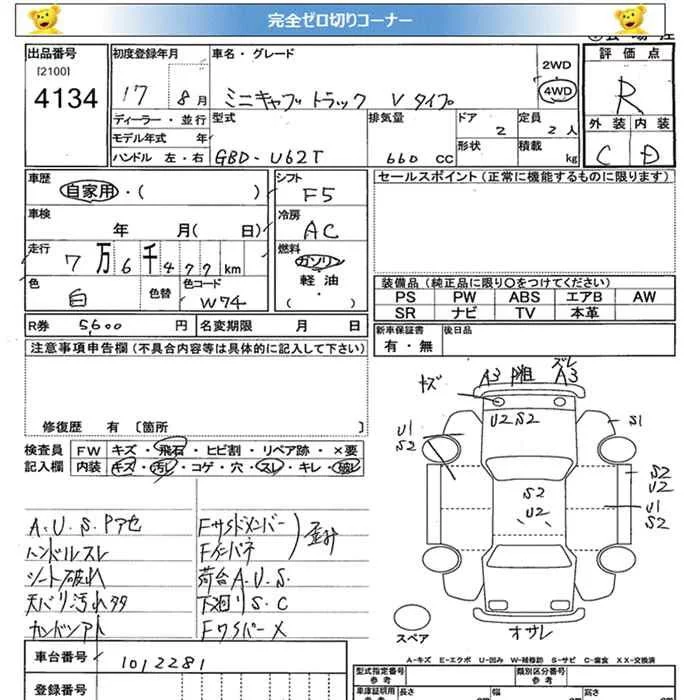 完全ゼロ切りコーナー
出品番号
[2100]
4134
初度登録年月
17 8月
車名・グレード
ミニキャブ トラック Vタイプ
2WD
4WD
評価点
R
外装 内装
C D
ディーラー・並行
モデル年式 年
ハンドル 左・右
型式
GBD-U62T
排気量
660 CC
ドア
2
形状
定員
2人
積載
kg
車歴
自家用・( )
シフト
F5
セールスポイント(正常に機能するものに限ります)
車検
年 月( 日)
冷房
AC
走行
7万6千477km
燃料
ガソリン
軽油
・( )
色
白
色替
色コード
W74
装備品(純正品に限り〇をつけてください)
PS PW ABS エアB AW
SR ナビ TV 本革
R券 5600円
名変期限 月 日
新車保証書
有・無
後日品
注意事項申告欄(不具合内容等は具体的に記入して下さい)
修復歴 有 〔箇所
検査員
記入欄
FW キズ・飛石・ヒビ割・リペア跡・×要
内装 キズ・汚レ・コゲ・穴・スレ・キレ・破レ
A.U.S.Pアセ
ハンドルスレ
シート破れ
天バリ汚れタタ
FサイドメンバーF
Fインパネ
荷台A.U.S.
下廻りS.C
Fワイパー×
キズ
A3
ズレ
A3
U2 S2
U1
S2
S1
S2
U2
S2
U2
U1
S2
オサレ
スペア
A-キズ E-エクボ U-凹み W-補修跡 S-サビ C-腐食 XX-交換済
車台番号 1012281
登録番号
型式指定番号
参考
類別区分番号
参考
車庫証明用
参考
長さ
幅
高さ